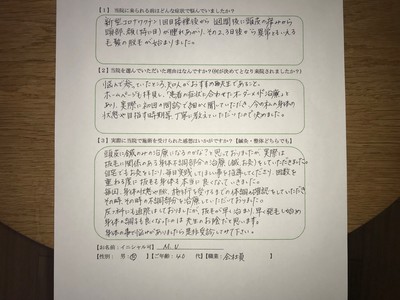 【1】 当院に来られる前はどんな症状で悩んでいましたか？
新型コロナワクチン1回目接種後から1週間後に頭皮の痛みから
頭部、顔(特に目)が腫れあがり、その2、3日後から異常ともいえる
毛髪の脱毛が始まりました。
【2】当院を選んでいただいた理由はなんですか？(何が決めてとなり来院されましたか？)
悩んで参していたところ、知人がおすすめの先生であること。
ホームページを拝見し、「患者の症状に合わせたオーダーメイド治療」と
あり、実際に初回の問診で細かく聞いていただき、今の私の身体の
状態や目指す時期等、丁寧に教えていただいたので決めました。
【3】実際に当院で施術を受けられた感想はいかがですか？【鍼灸・整体どちらでも】
頭皮に鍼のみの治療になるのかな？と思っておりましたが、実際は
抜毛に関係のある身体の不調部分の治療(鍼、お灸)をしていただきました。
自宅でもお灸をしたり、毎日実践してほしい事を指導してくださり、回数を
重ねる度に抜毛も身体も本当に良くなっていきました。
毎回、身体の状態の他、施術を受けてきての体調の確認をしていただき
その時、その時の不調部分を治療していただいておりました。
皮ふ科にも通院はしておりましたが、抜毛が早く治まり、早く発毛し始め
身体の調子も良くなったのは先生のお陰だと思います。
身体の事で悩みがありましたら是非受診してみて下さい。
【お名前：イニシャル可】 M.U
【性別： 男・女 】【ご年齢：40 代】【職業：会社員 】